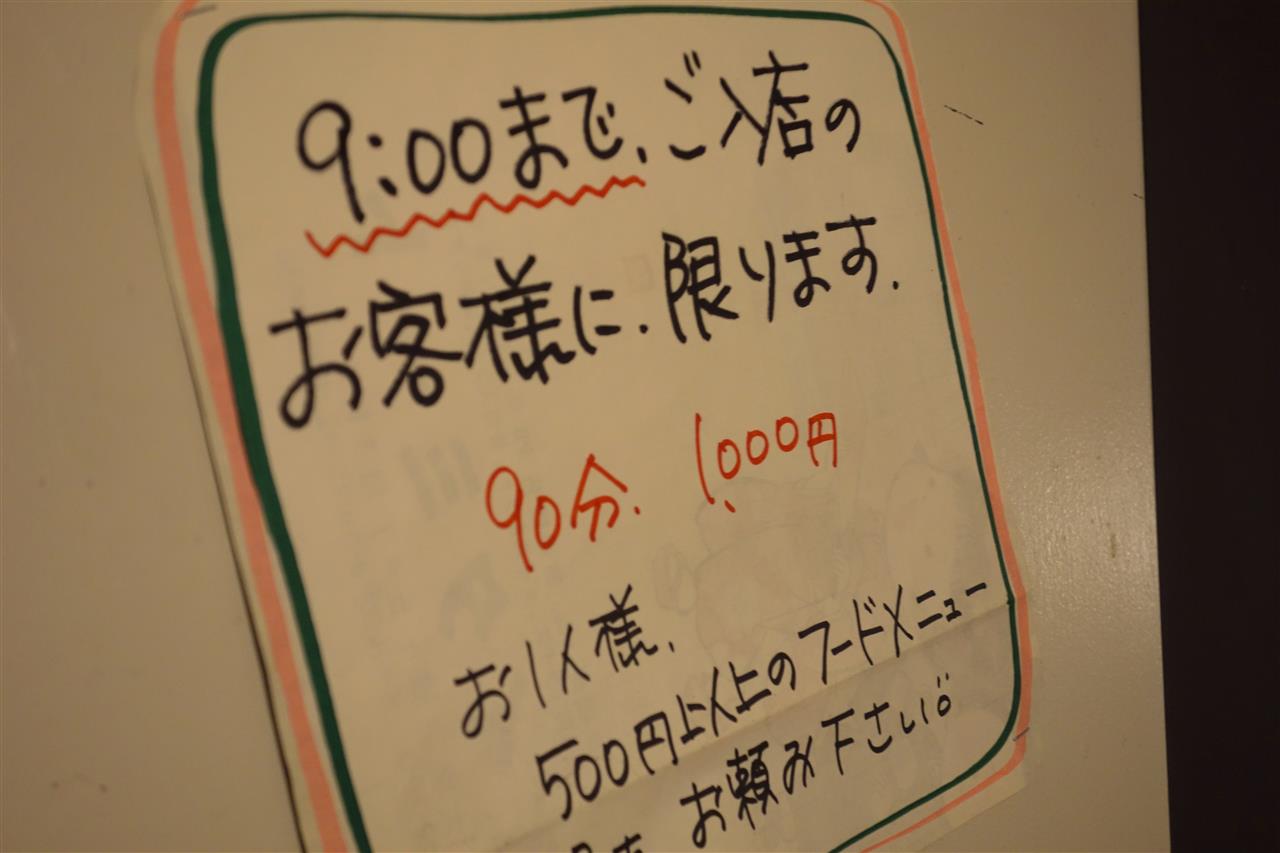 9:00まで、ご入店の
お客様に、限ります。
90分、1,000円
お1人様、
500円以上のフードメニュー
お頼み下さい。